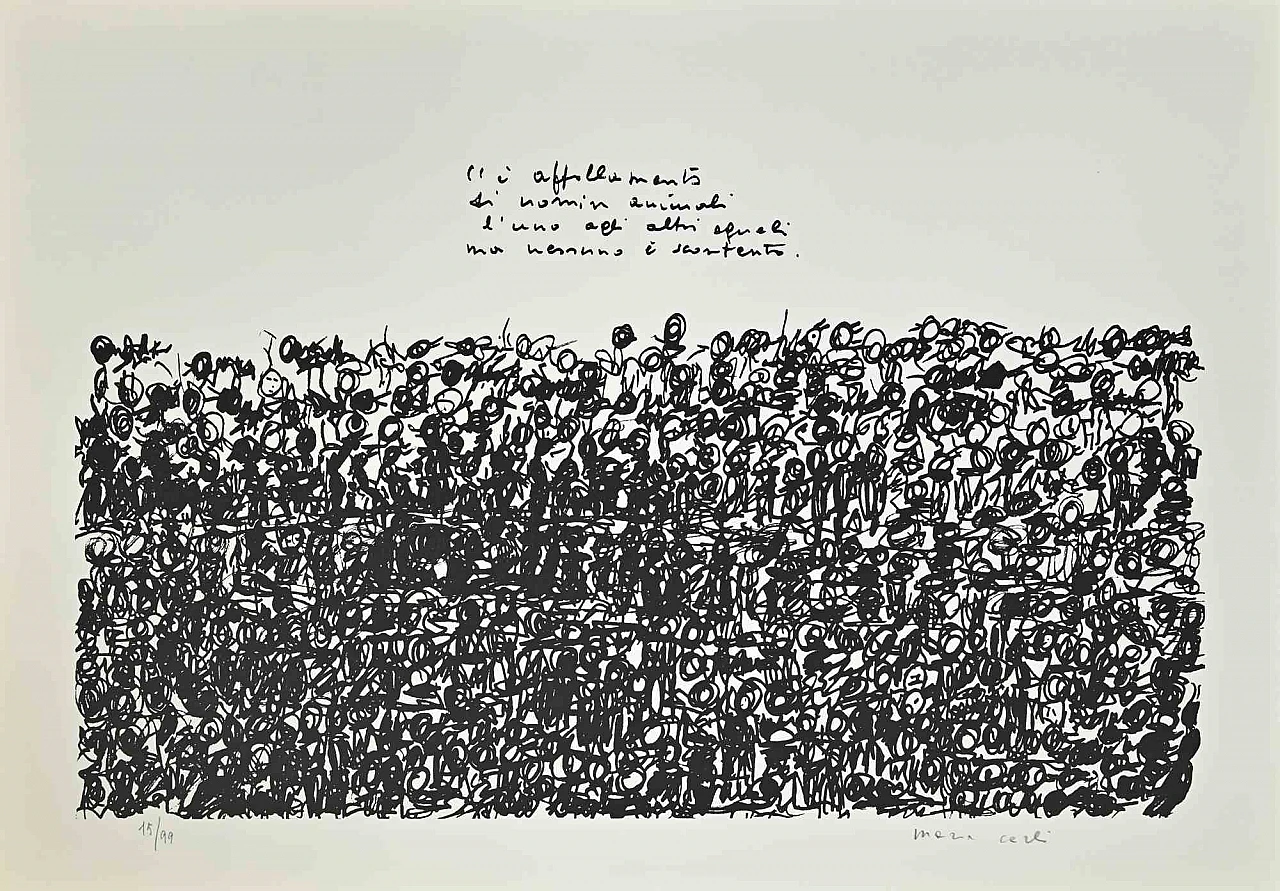 c'è affollamento
si nomin animali
l'uno agli altri eguali
ma nessuno è scontento.
15/99